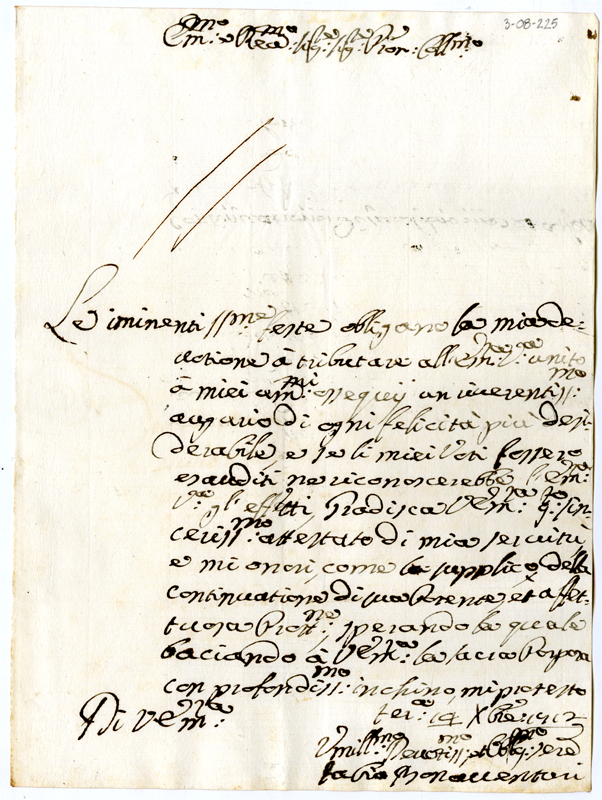 3-08-225
Em:mo e Rev:mo Sig:re Sig:re Pron: Coll:mo
Le iminentissme feste obligano la mia de-
uotione à tributare all'Em:za V:ra unito
à miei um:mi ossequij un riuerentiss:mo
augurio di ogni felicità più desi-
derabile e se li miei Voti fossero
esauditi ne riconoscerebbe l'Em:za
V:ra gl'effetti Gradisca V:Em:za q:to sin-
ceriss:mo attestato di mia seruitù
e mi onori, come la supplico della
continuatione di sua potente et affet-
tuosa Prott:ne, sperando la quale
baciando à V:Em:za la sacra Porpora
con profondiss:mo inchino, mi protesto
Di V:Em:za
14 Xbre
Vmiliss:mo Deuotiss:mo et Obblig:mo Ser:e
Fabio Bonauenturi